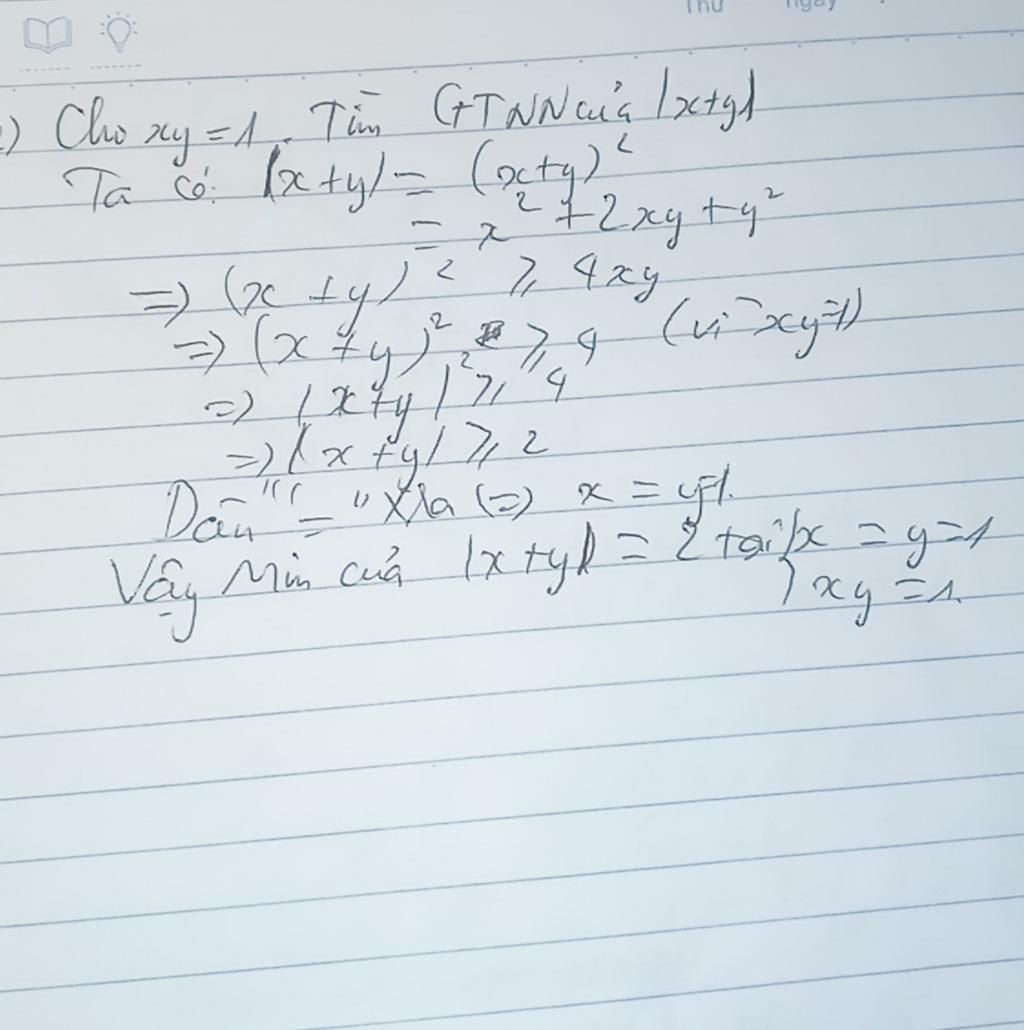 Thứ ngày
) Cho xy = 1. Tìm GTNN của |x+y|
Ta có: |x+y| = (x+y)²
= x² + 2xy + y²
=> (x+y)² ≥ 4xy
=> (x+y)² ≥ 4 (vì xy=1)
=> |x+y|² ≥ 4
=> |x+y| ≥ 2
Dấu "=" xra (=) x = y=1.
Vậy Min của |x+y| = 2 tại { x = y = 1
xy = 1.